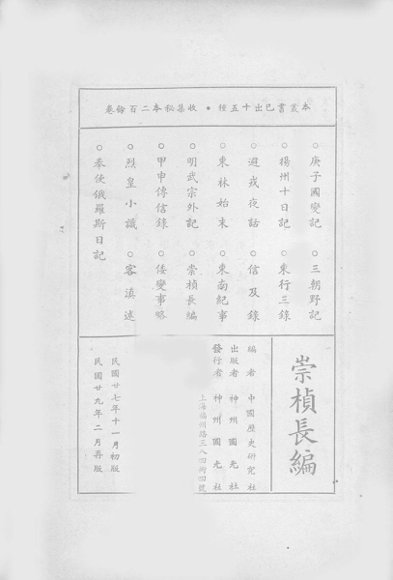 本叢書已出十五種・收集秘本二百餘卷
○庚子國變記
○揚州十日記
○避戎夜話
○東林始末
○明武宗外記
○甲申傳信錄
○烈皇小識
○奉使俄羅斯日記
○三朝野記
○東行三錄
○信及錄
○東南紀事
○崇禎長編
○倭變事略
○客滇述
崇楨長編
編者 中國歷史研究社
出版者 神州國光社
發行者 神州國光社
上海福州路三八四衖四號
民國廿七年十一月初版
民國廿九年二月再版